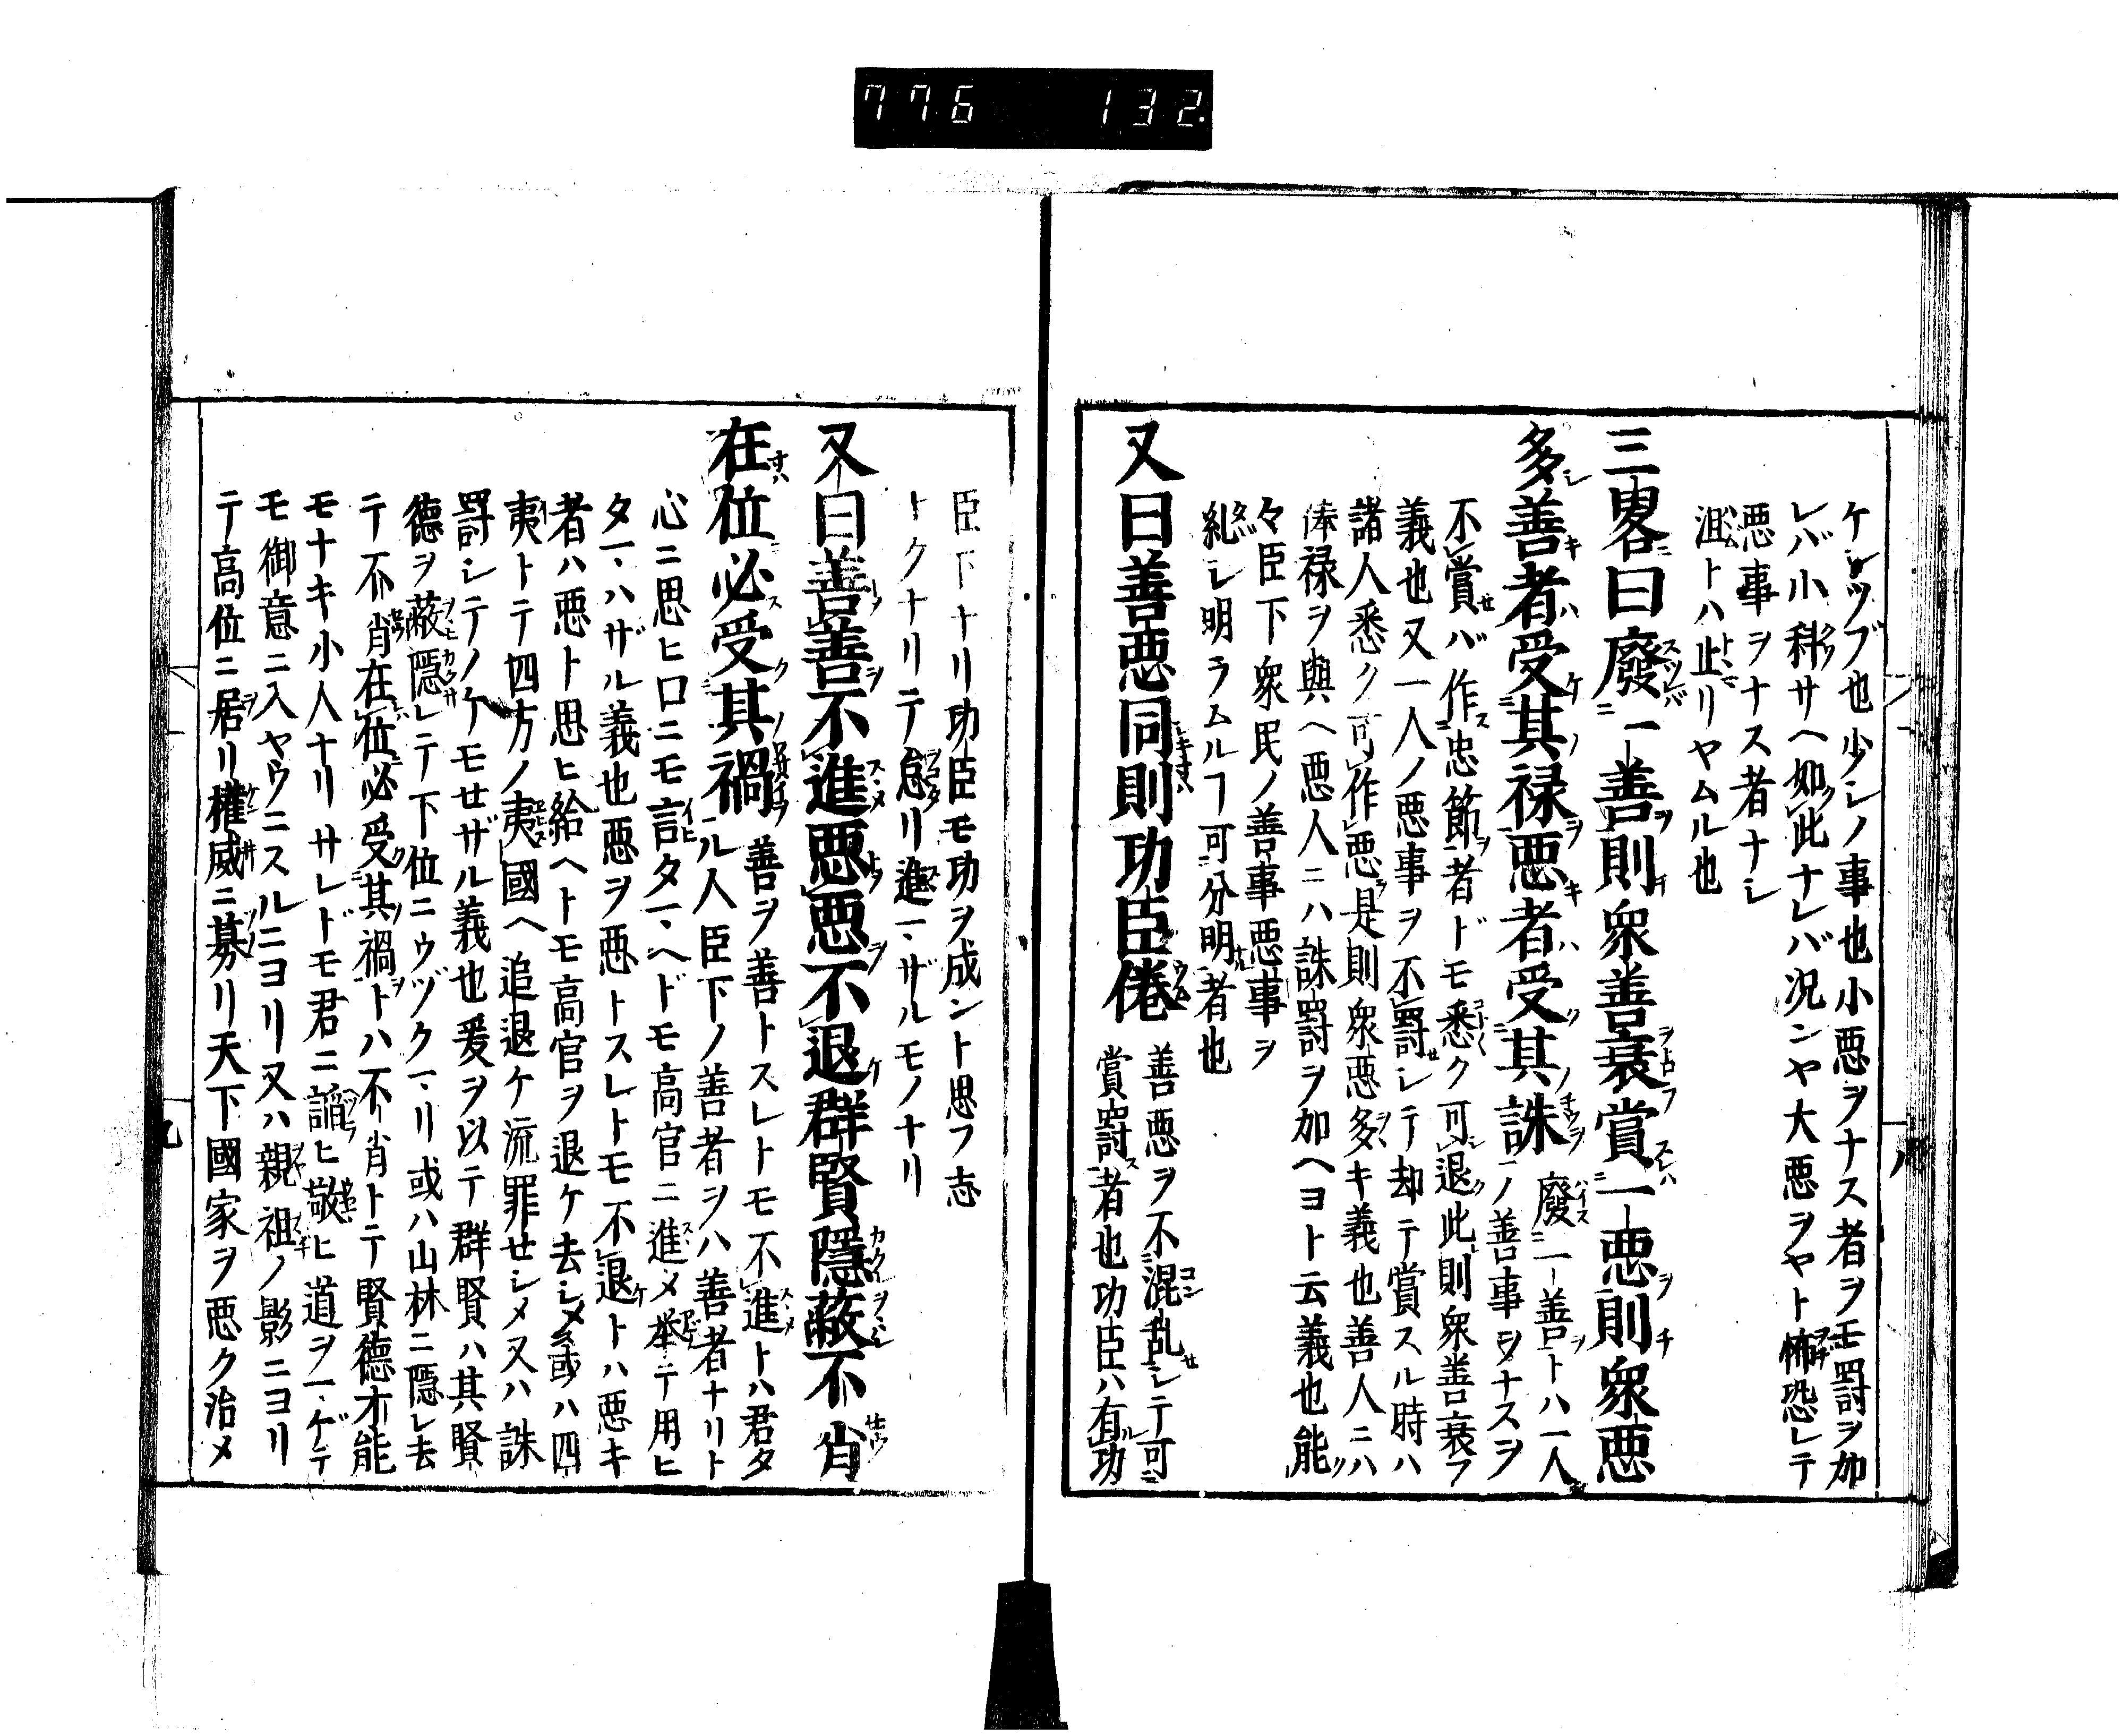 776 132
ケレツブ也少シノ事也小悪ヲナス者ヲモ罸ヲ加
レバ小科サヘ如此ナレバ況ンヤ大悪ヲヤト怖恐レテ
悪事ヲナス者ナシ
沮トハ止リヤムル也
三畧曰廢一善則衆善衰賞一悪則衆悪
多善者受其禄悪者受其誅 廢一善トハ一人
ノ善事ヲナスヲ
不賞バ作忠節者ドモ悉ク可退此則衆善衰フ
義也又一人ノ悪事ヲ不罸シテ却テ賞スル時ハ
諸人悉ク可作悪是則衆悪多キ義也善人ニハ
俸禄ヲ與ヘ悪人ニハ誅罸ヲ加ヘヨト云義也能
々臣下衆民ノ善事悪事ヲ
糺シ明ラムルヿ可分明者也
又曰善悪同則功臣倦 善悪ヲ不混乱シテ可
賞罸者也功臣ハ有功
臣下ナリ功臣モ功ヲ成ント思フ志
トクナリテ怠リ進マザルモノナリ
又曰善善不進悪悪不退群賢隠蔽不肖
在位必受其禍 善ヲ善トスレトモ不進トハ君タ
ル人臣下ノ善者ヲハ善者ナリト
心ニ思ヒ口ニモ言タマヘドモ高官ニ進メ挙テ用ヒ
タマハザル義也悪ヲ悪トスレトモ不退トハ悪キ
者ハ悪ト思ヒ給ヘトモ高官ヲ退ケ去シメ或ハ四
夷トテ四方ノ夷國ヘ追退ケ流罪セシメ又ハ誅
罸シテノケモせザル義也爰ヲ以テ群賢ハ其賢
德ヲ蔽隠レテ下位ニウヅクマリ或ハ山林ニ隠レ去
テ不肖在位必受其禍トハ不肖トテ賢德才能
モナキ小人ナリサレドモ君ニ諂ヒ敬ヒ道ヲマゲテ
モ御意ニ入ヤウニスルニヨリ又ハ親祖ノ影ニヨリ
テ高位ニ居リ權威ニ募リ天下國家ヲ悪ク治メ
八
九